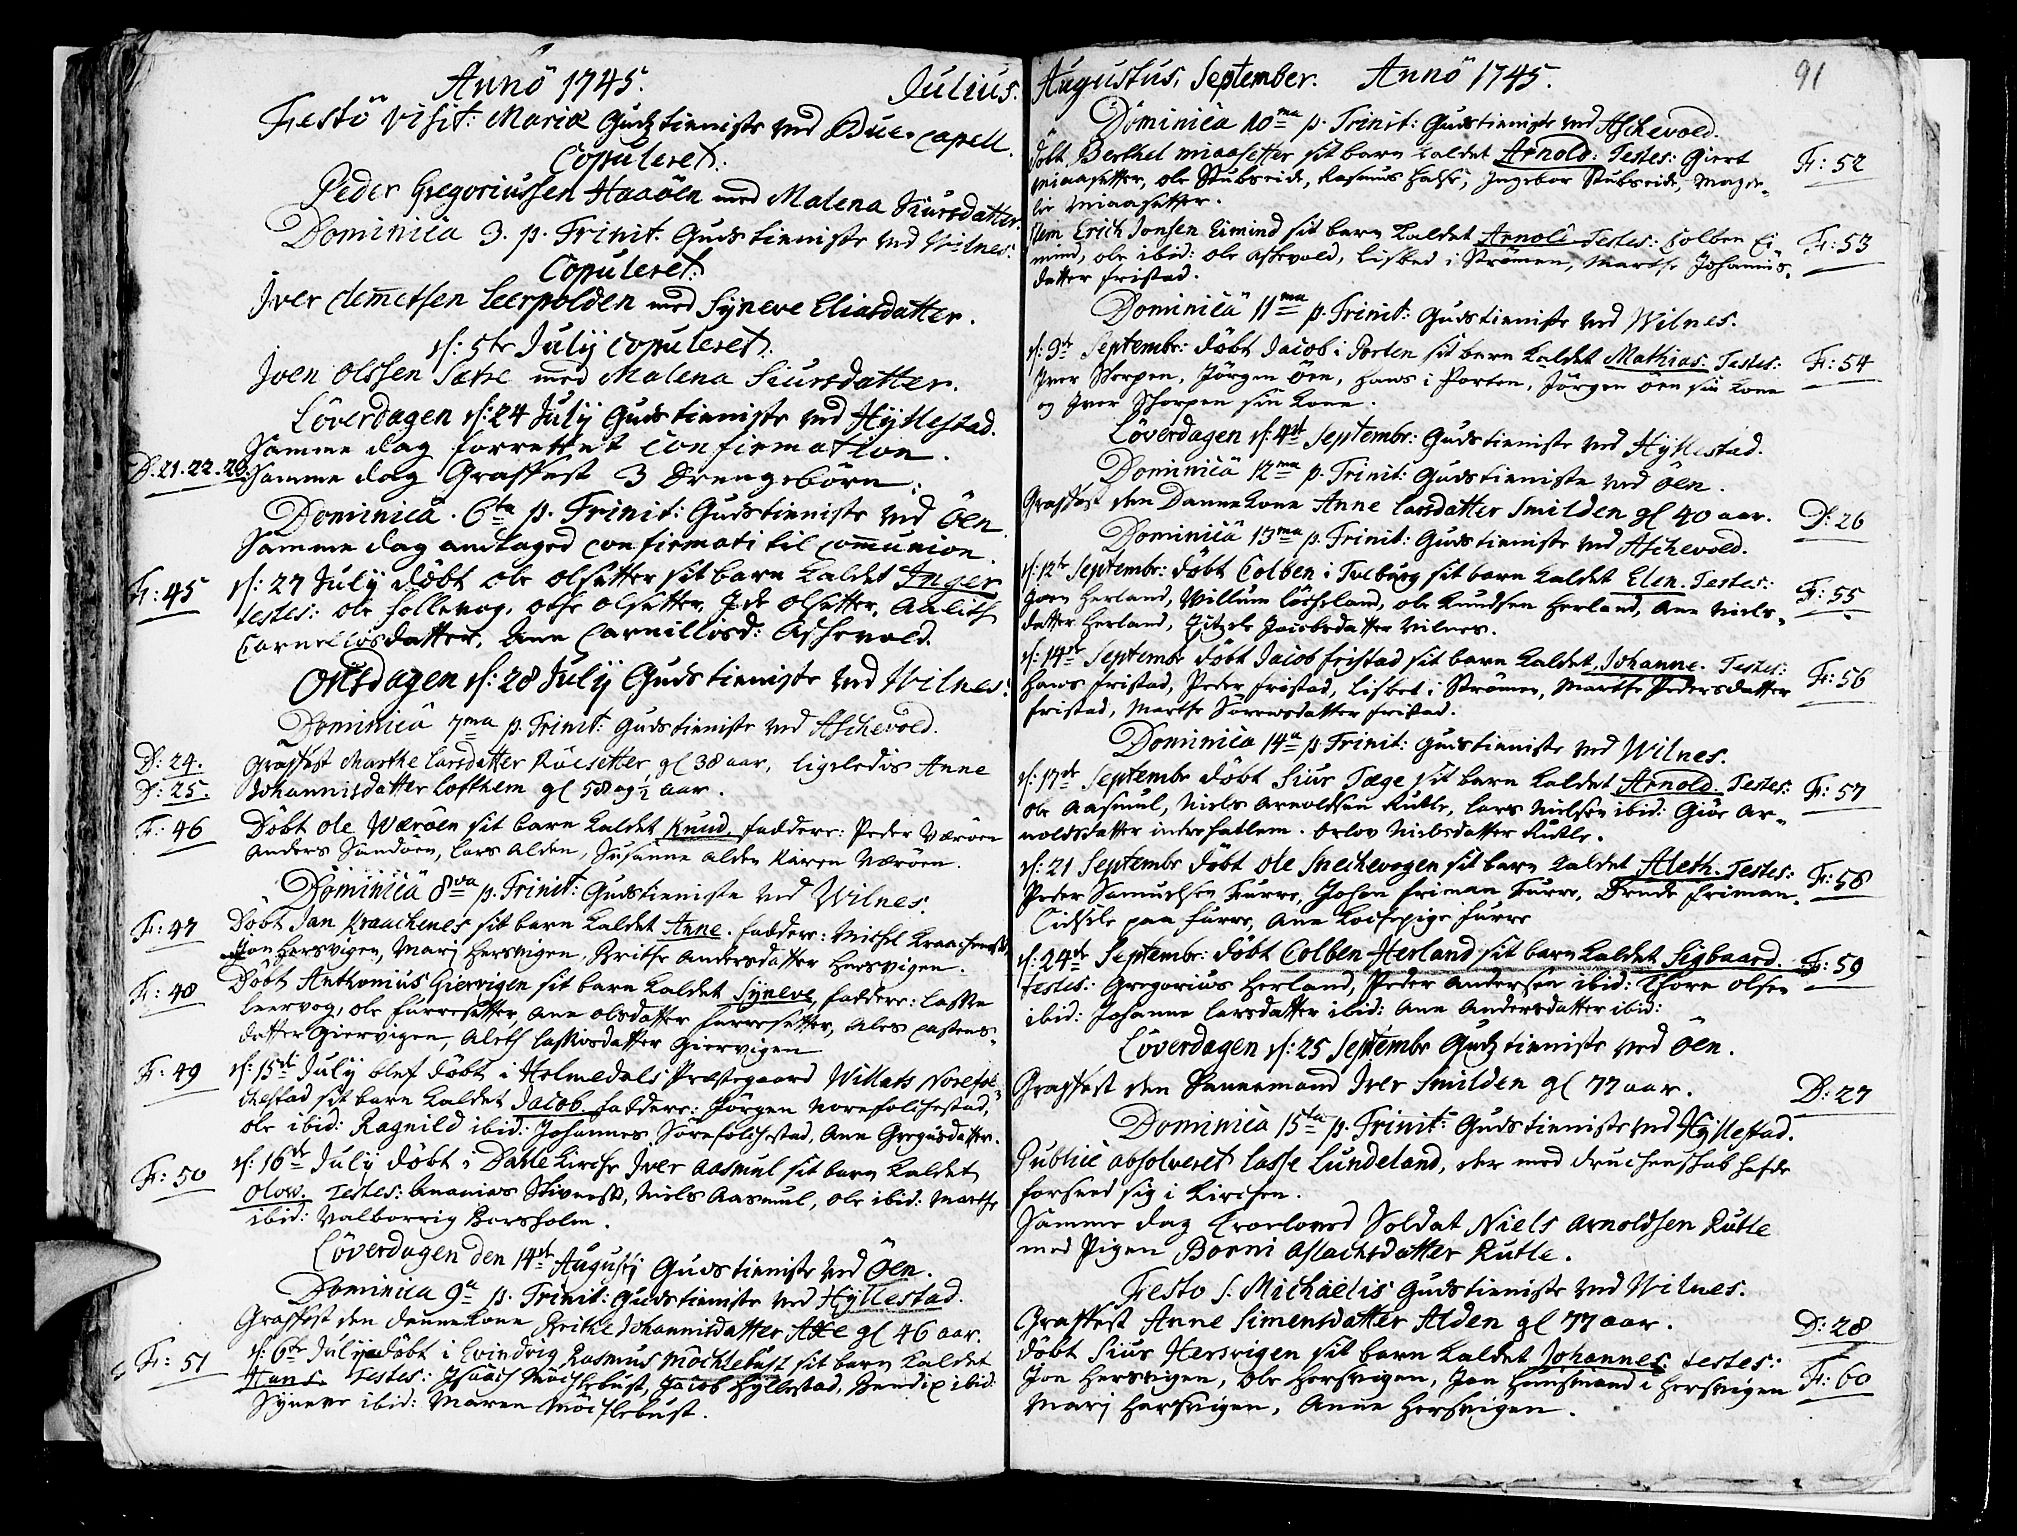 Annö 1745. Julius.
Festö Visit: Mariæ Gudstieniste ved Buecapell.
Copuleret.
Peder Gregoriussen Haaöen med Malena Siursdatter.
Dominica 3. p. Trinit: Gudstieniste ved Wilnes.
Copuleret.
Iver Clemetsen Leerpolden med Synneve Eliasdatter.
d: 5te Julij Copuleret.
Iven Olssen Sætre med Malena Siursdatter.
Löverdagen d: 24 Julij Gudstieniste ved Hyllestad.
Samme dag forrettet Confirmation.
D: 21. 22. 23. Samme dag Graffest 3 Drengebörn.
Dominica 6ta p. Trinit: Gudstieniste ved Öen.
Samme dag andtaged Confirmati til Communion.
F: 45 d: 27 Julij döbt Ole Olsetter sit barn kaldet Inger
testes: Ole Sollevog, Olsetter, Olsetter,
Corneliusdatter, Ane Cornilliusd: Aschevold.
Onsdagen d: 28 Julij Gudstieniste ved Wilnes.
Dominica 7ma p. Trinit: Gudstieniste ved Aschevold.
D: 24. Graffest Marthe Larsdatter Röesetter, gl 38 aar, ligeledis Anne
D: 25. Johannisdatter Lofthem gl 58 og ½ aar.
F: 46 Döbt Ole Wæröen sit barn kaldet Knud, faddere: Peder Væröen
Anders Sandöen, Lars Alden, Susanne Alden Karen Væröen.
Dominica 8va p. Trinit: Gudstieniste ved Wilnes.
F: 47 Döbt Jan Kraachenes sit barn kaldet Anne. faddere: Michel Kraachenes
Jon Hersvigen, Mari Hersvigen, Brithe Andersdatter Hersvigen.
F: 48 Döbt Anthonius Giervigen sit barn kaldet Syneve, faddere: Lasse
Leervog, Ole Furresetter, Ane Olsdatter Furresetter, Ales
datter Giervigen, Aleth Lasseisdatter Giervigen
F: 49 d: 15de Julij blef döbt i Holmedals Præstegaard Willads Norefol-
chestad sit barn kaldet Jacob. faddere: Jörgen Norefolchestad,
Ole ibid: Ragnild ibid: Johannes Sörefolchestad, Ane Gregusdatter.
F: 50 d: 16de Julij döbt i Dalle Kirche Iver Aasmul sit barn kaldet
Olow. Testes: Ananias, Niels Aasmul, Ole ibid: Marthe
ibid: Valborrig Borsholm.
Löverdagen den 14de Augustij Gudstieniste ved Öen.
Dominica 9a p. Trinit: Gudstieniste ved Hyllestad.
Graffest den dannekone Brithe Johannisdatter gl 46 aar.
F: 51 d: 6te Julij döbt i Evindvig Rasmus Möchlebust sit barn kaldet
Hans. Testes: Isaach Möchlebust, Jacob Hyllestad, Bendix ibid:
Syneve ibid: Maren Möchlebust.
Augustus, September. Annö 1745. 91
Dominica 10ma p. Trinit: Gudstieniste ved Aschevold.
döbt Berthel Miaasetter sit barn kaldet Arnold. Testes: Giert F: 52
Miaasetter, Ole Stubseide, Rasmus, Ingebor Stubseide, Magde-
li Miaasetter.
Item Erich Jonsen Eimind sit barn kaldet Arnoli Testes: Colben Ei- F: 53
mind, Ole ibid: Ole Aschevold, Lisbed i Strömen, Marthe Johannis-
datter fristad.
Dominica 11ma p. Trinit: Gudstieniste ved Wilnes.
d: 3de Septembr: döbt Jacob i Porten sit barn kaldet Mathias. Testes: F: 54
Iver Skorpen, Jörgen Öen, Hans i Porten, Jörgen Öen sin kone
og Iver Skorpen sin kone.
Löverdagen d: 4de Septembr: Gudstieniste ved Hyllestad.
Dominica 12ma p. Trinit: Gudstieniste ved Öen.
Graffest den Dannekone Anne Larsdatter Smilden gl 40 aar. D: 26
Dominica 13ma p. Trinit: Gudstieniste ved Aschevold.
d: 12te Septembr: döbt Colben i Tueburg sit barn kaldet Elen. Testes: F: 55
Herland, Willum Löcheland, Ole Knudsen Herland, Ane Niels-
datter Herland, Jacobsdatter Vilnes.
d: 14de Septembr döbt Jacob fristad sit barn kaldet Johanne. Testes: F: 56
Hans fristad, Peder fristad, Lisbet i Strömen, Marthe Pedersdatter
fristad, Marthe Sörensdatter fristad.
Dominica 14a p Trinit: Gudstieniste ved Wilnes.
d: 17de Septembr döbt Sius Tæge sit barn kaldet Arnold. Testes: F: 57
Ole Aasmul, Niels Arnoldsen Rutle, Lars Nielsen ibid: Giöe Ar-
noldsdatter indrehatlem. Orlov Nielsdatter Rutle.
d: 21 Septembr döbt Ole Snechevogen sit barn kaldet Aleth. Testes: F: 58
Peder Samuelsen Furre, Johan Friman Furre, Drude Friman,
Cidsele paa Furre, Ane Kochepige Furre
d: 24de Septembr: döbt Colben Herland sit barn kaldet Sigbaard. F: 59
testes: Gregorius Herland, Peder Andersen ibid: Thore Olsen
ibid: Johanne Larsdatter ibid: Ane Andersdatter ibid:
Löverdagen d: 25 Septembr Gudstieniste ved Öen.
Graffest den Dannemand Iver Smilden gl 77 aar. D: 27
Dominica 15ta p. Trinit: Gudstieniste ved Hyllestad.
Publice absolveret Lasse Lundeland, der med druchenskab hafde
forseed sig i Kirchen.
Samme dag Trolovet Soldat Niels Arnoldsen Rutle
med Pigen Borni Aslachsdatter Rutle.
Festo S: Michaelis Gudstieniste ved Wilnes.
Graffest Anne Simensdatter Alden gl 77 aar. D: 28
döbt Sius Hersvigen sit barn kaldet Johannes. testes: F: 60
Jon Hersvigen, Ole Hersvigen, Jon Huusmand i Hersvigen
Mari Hersvigen, Anne Hersvigen.